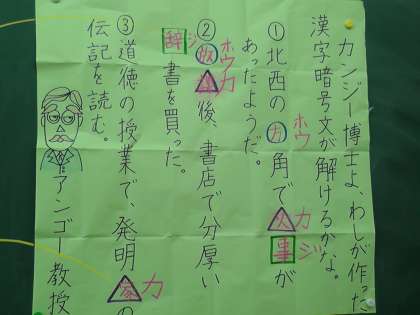 カンジー博士よ、わしが作った
漢字暗号文が解けるかな。
ホウ カ ジ
①北西の方角で火事が
あったようだ。
ホウカ
②放課後、書店で分厚い
ジ
辞書を買った。
カ
③道徳の授業で、発明家の
伝記を読む。
アンゴー教授